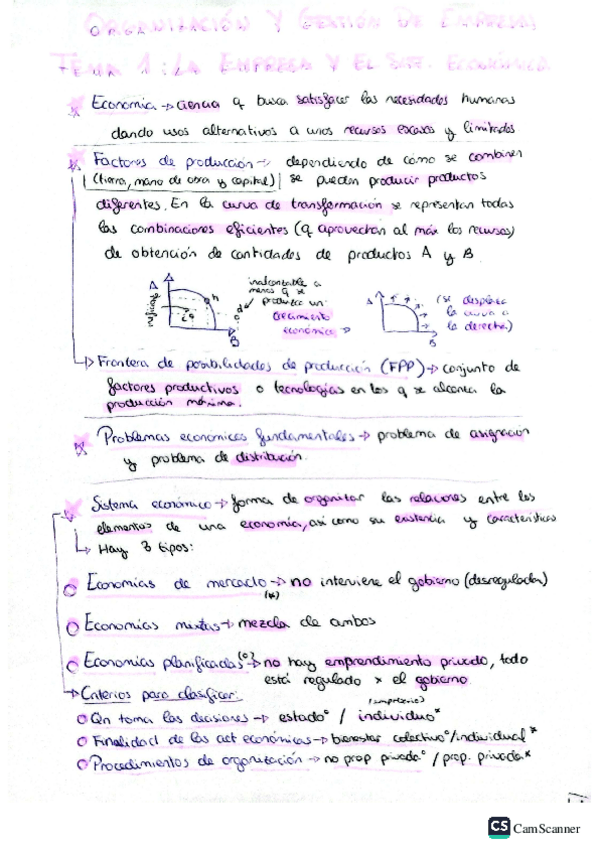 ORGANIZACIÓN Y GESTIÓN DE EMPRESAS
TEMA 1: LA EMPRESA Y EL SIST. ECONÓMICO
Economía → ciencia q busca satisfacer las necesidades humanas
dando usos alternativos a unos recursos escasos y limitados
Factores de producción → dependiendo de cómo se combinen
(tierra, mano de obra y capital) se pueden producir productos
diferentes. En la curva de transformación se representan todas
las combinaciones eficientes (q aprovechan al máx los recursos)
de obtención de cantidades de productos A y B
inalcanzable a
menos q se
produzca un
crecimiento
económico →
A
B
A
B
(se desplaza
la curva a
la derecha)
→ Frontera de posibilidades de producción (FPP) → conjunto de
factores productivos o tecnologías en los q se alcanza la
producción máxima.
Problemas económicos fundamentales → problema de asignación
y problema de distribución.
Sistema económico → forma de organizar las relaciones entre los
elementos de una economía, así como su existencia y características
→ Hay 3 tipos:
Economías de mercado → no interviene el gobierno (desregulada)
(*)
Economías mixtas → mezcla de ambos
Economías planificadas (°) → no hay emprendimiento privado, todo
está regulado x el gobierno.
→ Criterios para clasificar:
Qn toma las decisiones → estado° / individuo*
(empresario)
Finalidad de las act económicas → bienestar colectivo°/individual*
Procedimientos de organización → no prop privada° / prop. privada*
CS CamScanner